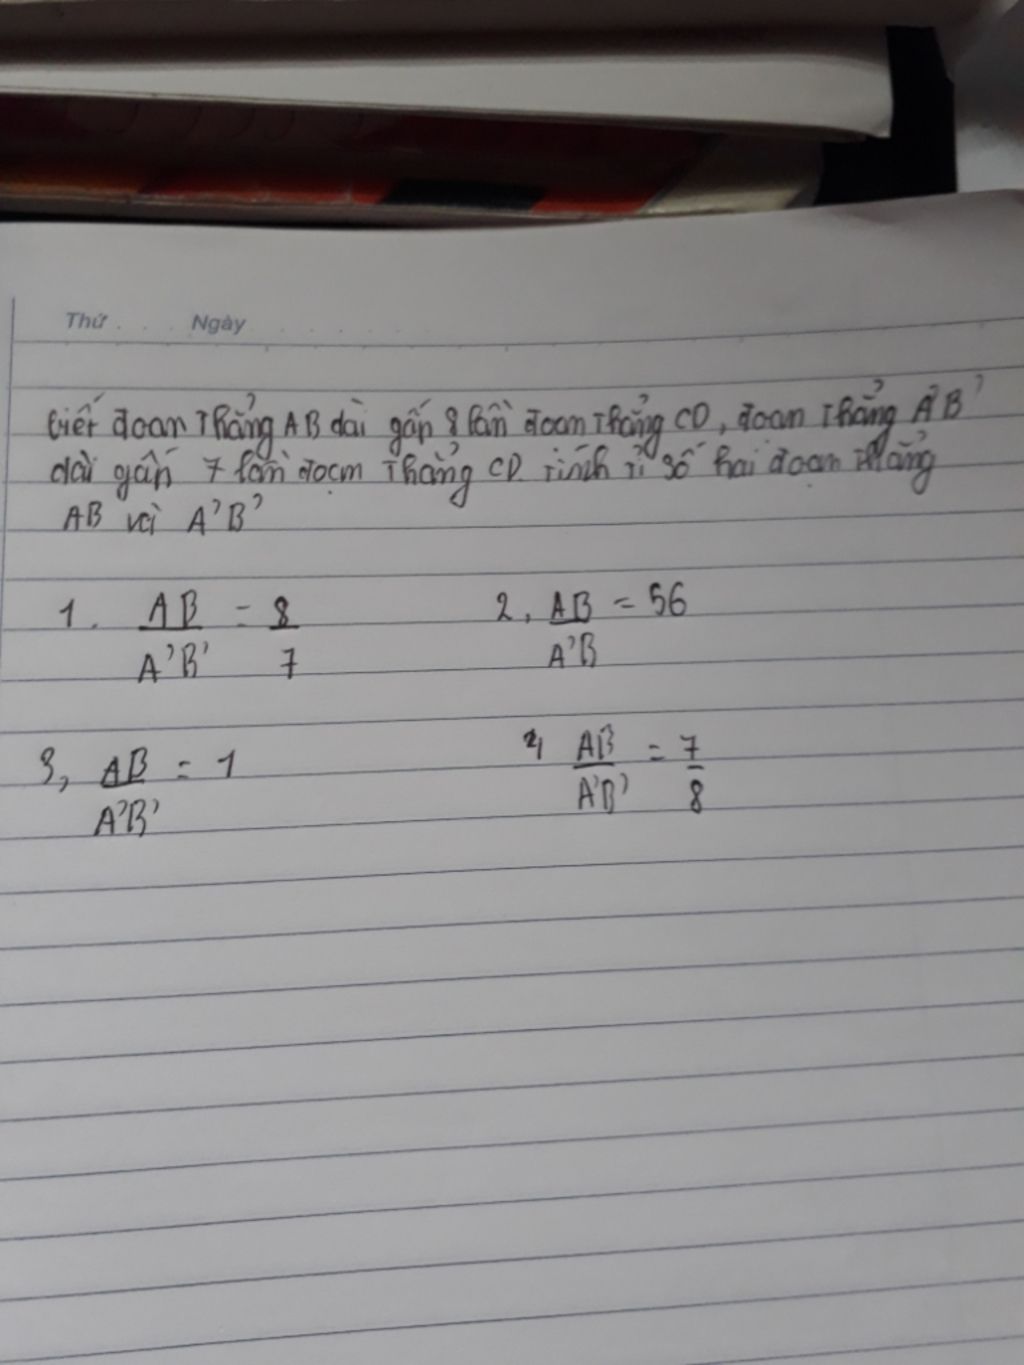 Thứ . . . Ngày . . . . .
biết đoan thẳng AB dài gấp 8 lần đoan thẳng CD, đoan thẳng A'B'
dài gấp 7 lần đoạn thẳng CD. tính tỉ số hai đoạn thẳng
AB và A'B'
1. AB/A'B' = 8/7 2, AB/A'B = 56
3, AB/A'B' = 1 4, AB/A'B' = 7/8